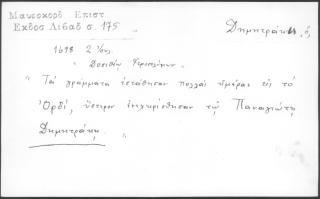 Μαυροκορδ Επιστ
Εκδοσ Λιβαδ σ. 175
Δημητράκης, ὁ,
1698 2
" Τὰ γράμματα ἐστάθησαν πολλαὶ ἡμέραι εἰς τὸ
Ὀρδί, ὕστερον ἐνεχειρίσθησαν τῷ Παναγιώτῃ
Δημητράκῃ.